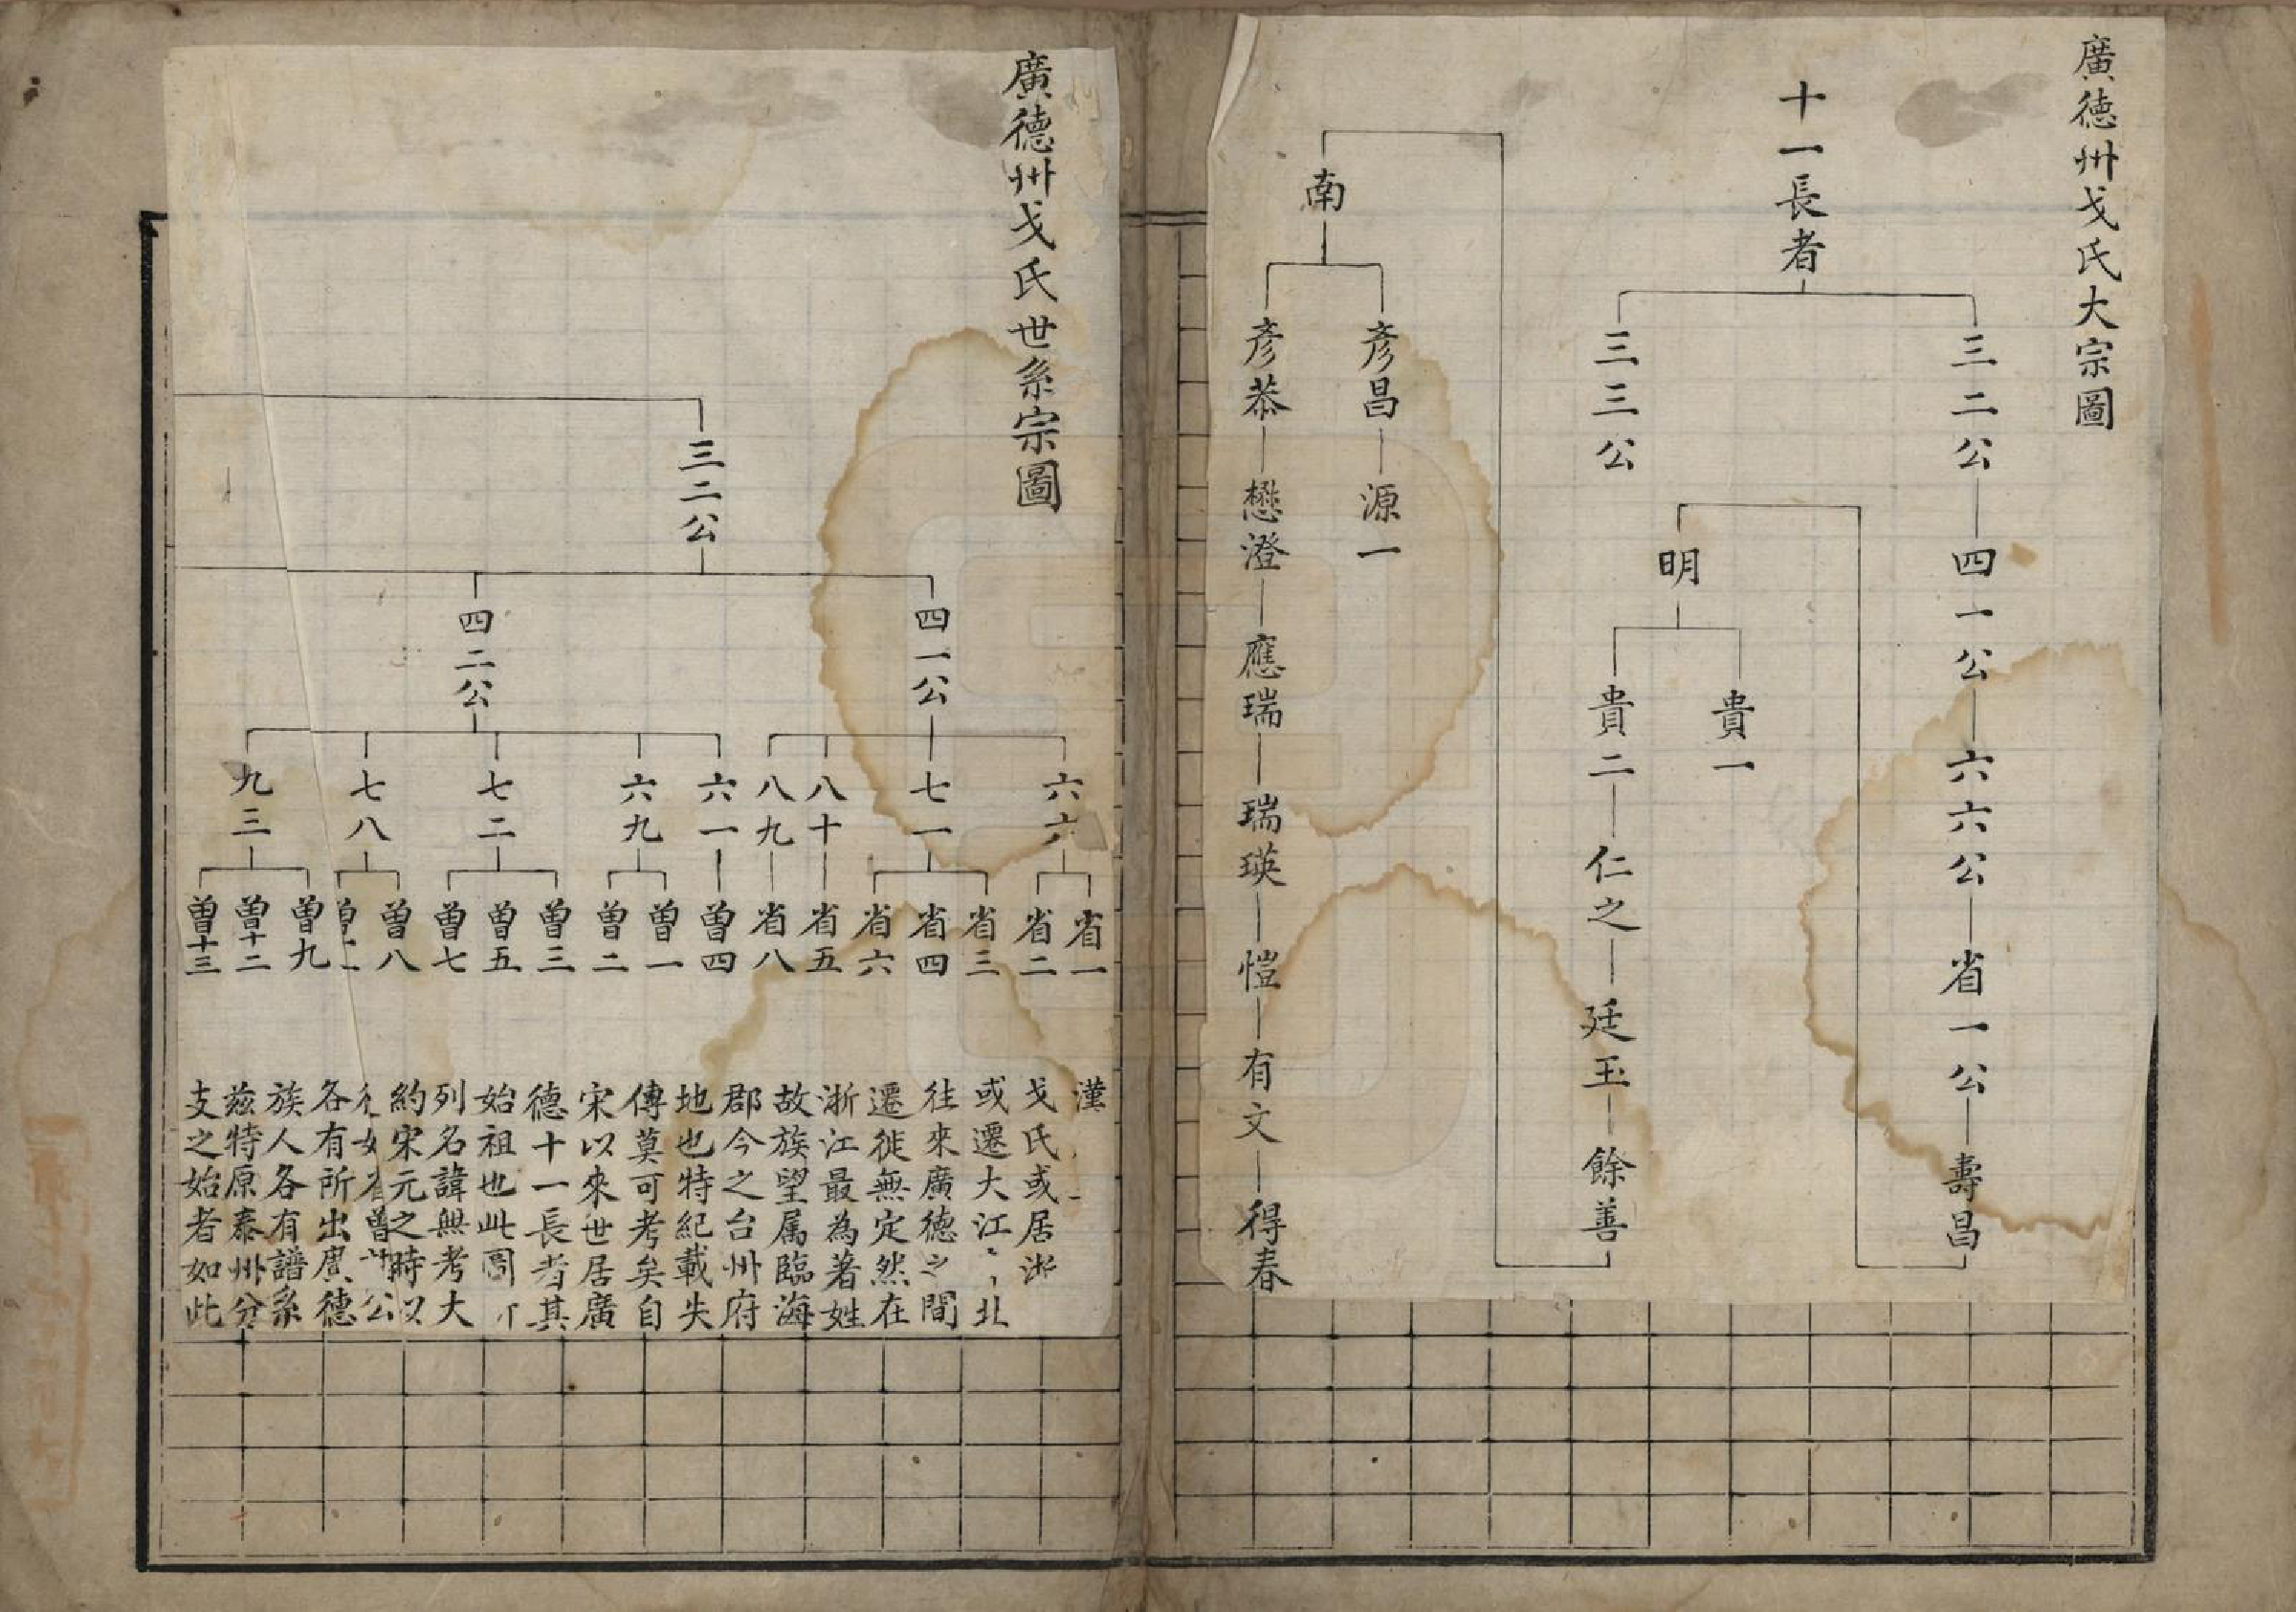 廣德州戈氏大宗圖
十一長者
三二公
四一公
六六公
省一公
壽昌
三三公
明
貴一
貴二
仁之
廷玉
餘善
南
彥昌
源一
彥恭
懋澄
應瑞
瑞瑛
愷
有文
得春
廣德州戈氏世系宗圖
三二公
四一公
四二公
六六
七一
八十
八九
六一
六九
七二
七八
九三
省一
省二
省三
省四
省六
省五
省八
曽四
曽一
曽二
曽三
曽五
曽七
曽八
曽九
曽十二
曽十三
漢
戈氏或居浙
或遷大江北
往來廣德之間
遷徙無定然在
浙江最為著姓
故族望属臨海
郡今之台州府
地也特紀載失
傳莫可考矣自
宋以來世居廣
德十一長者其
始祖也此圖
列名諱無考大
約宋元之時以
曽公
各有所出廣德
族人各有譜系
茲特原泰州分
支之始者如此